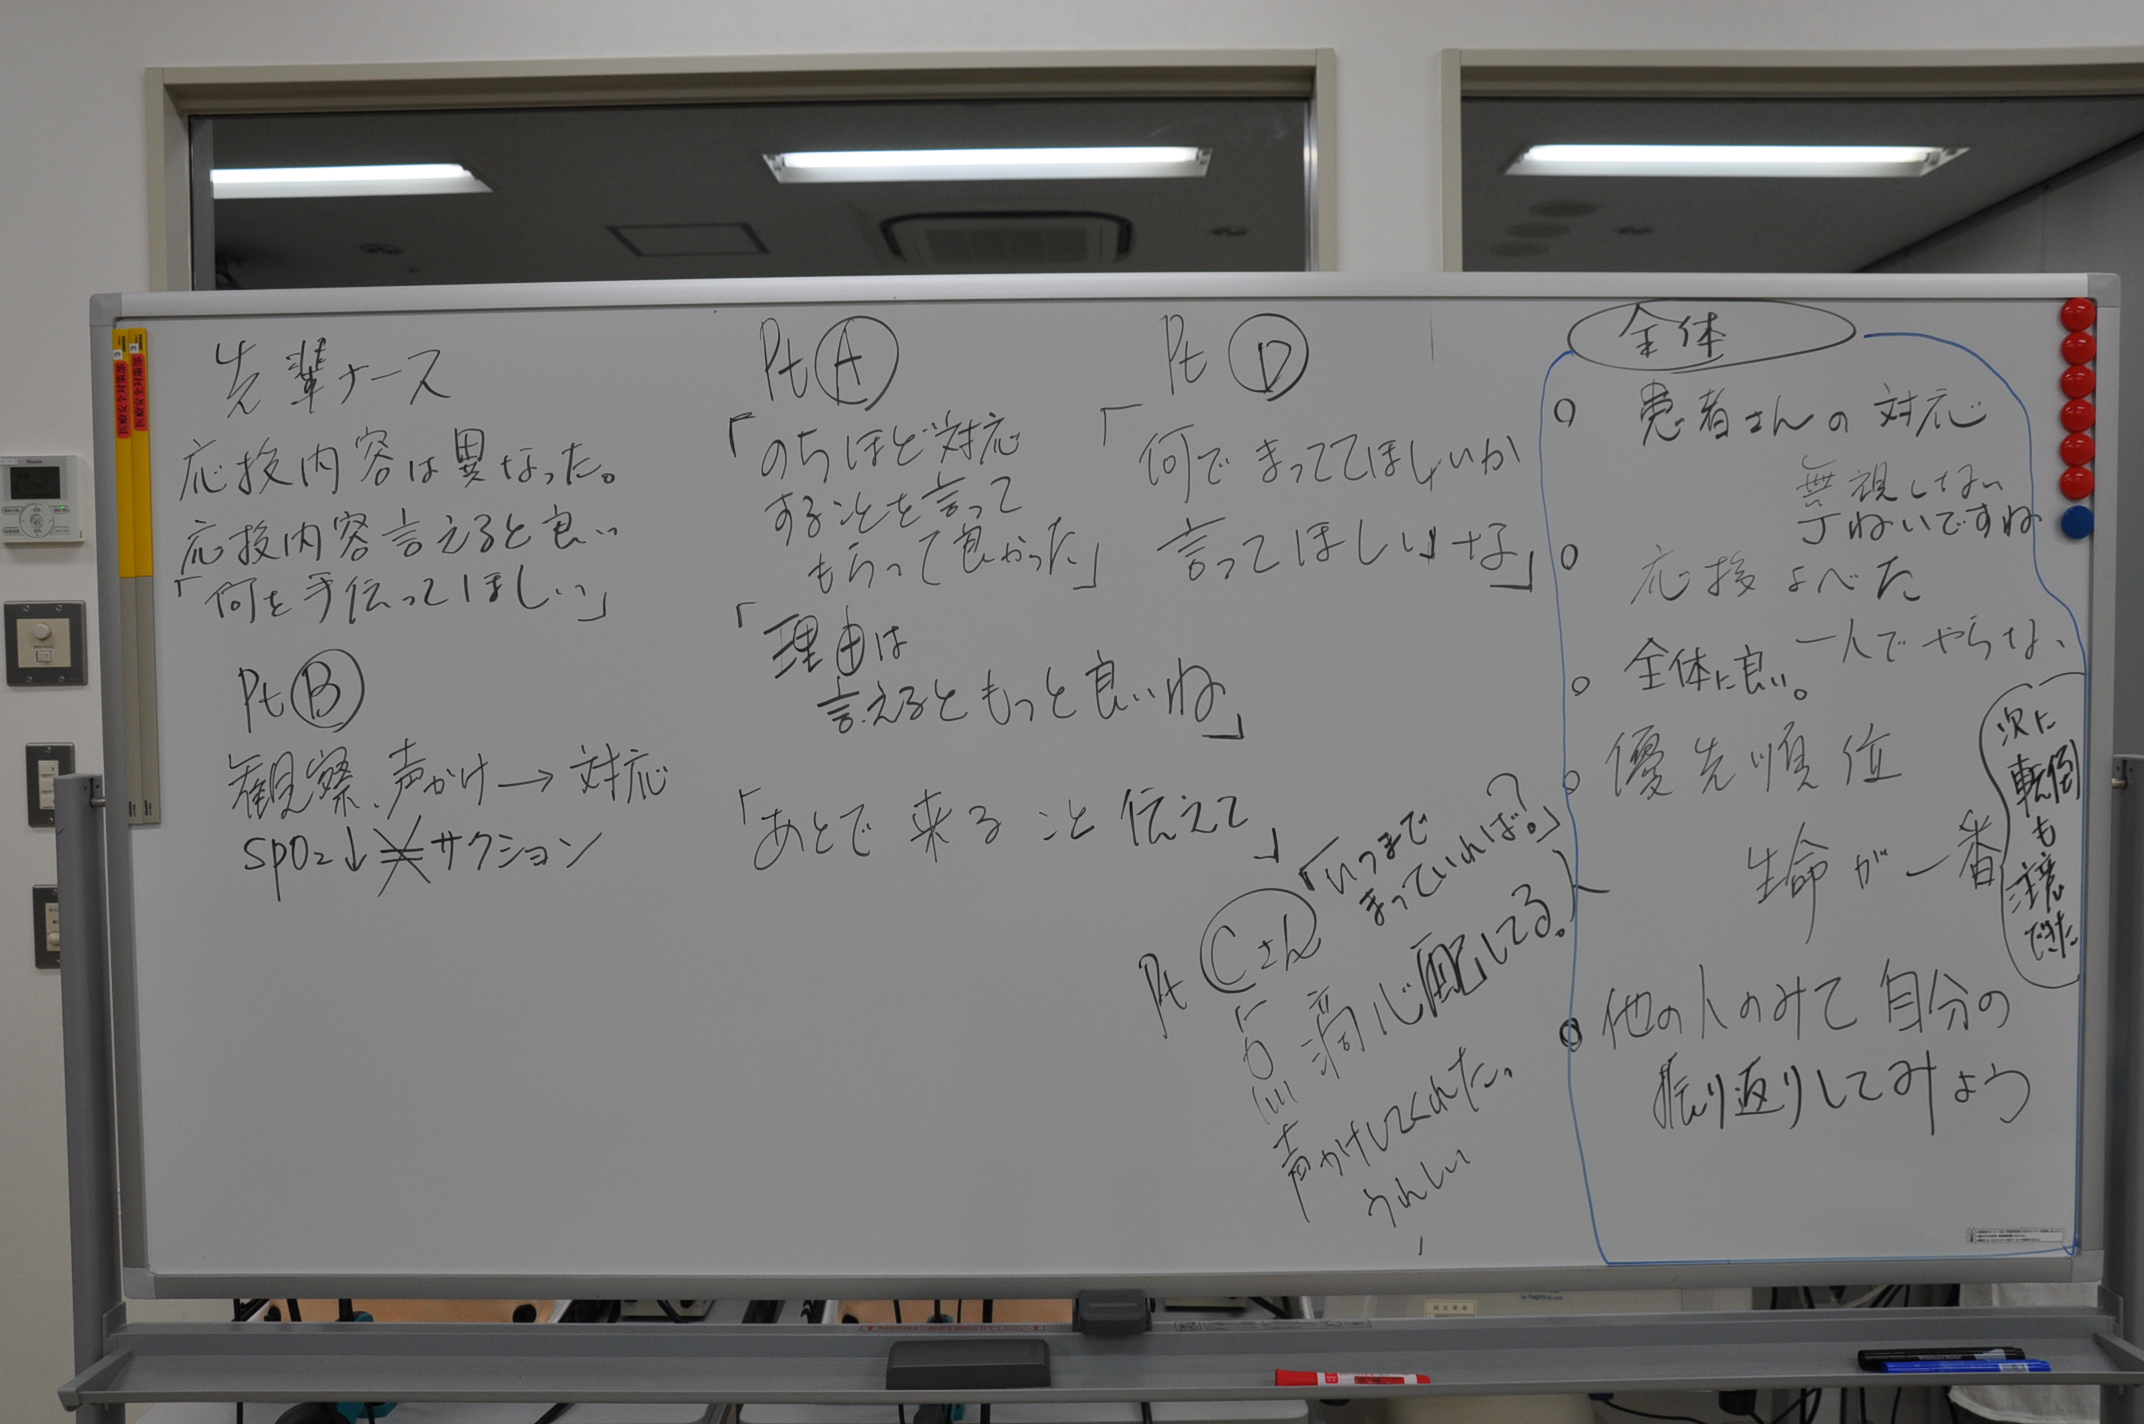 先輩ナース
応援内容は異なった。
応援内容言えると良い
「何を手伝ってほしい」
Pt B
観察、声かけ→対応
SpO₂↓ サクション
Pt A
「のちほど対応
することを言って
もらって良かった」
「理由は
言えるともっと良いね」
「あとで来ること伝えて」
Pt D
「何でまっててほしいか
言ってほしいな」
Pt Cさん
「いつまで
まっていれば?。」
滴心配してる。
声かけしてくれた。
うれしい
全体
○ 患者さんの対応
無視しない
丁ねいですね
○ 応援よべた
一人でやらない
○ 全体に良い。
○ 優先順位
生命が一番
次に
転倒
も
注意
できた
○ 他の人のみて自分の
振り返りしてみよう
医療安全対策部
医療安全対策部